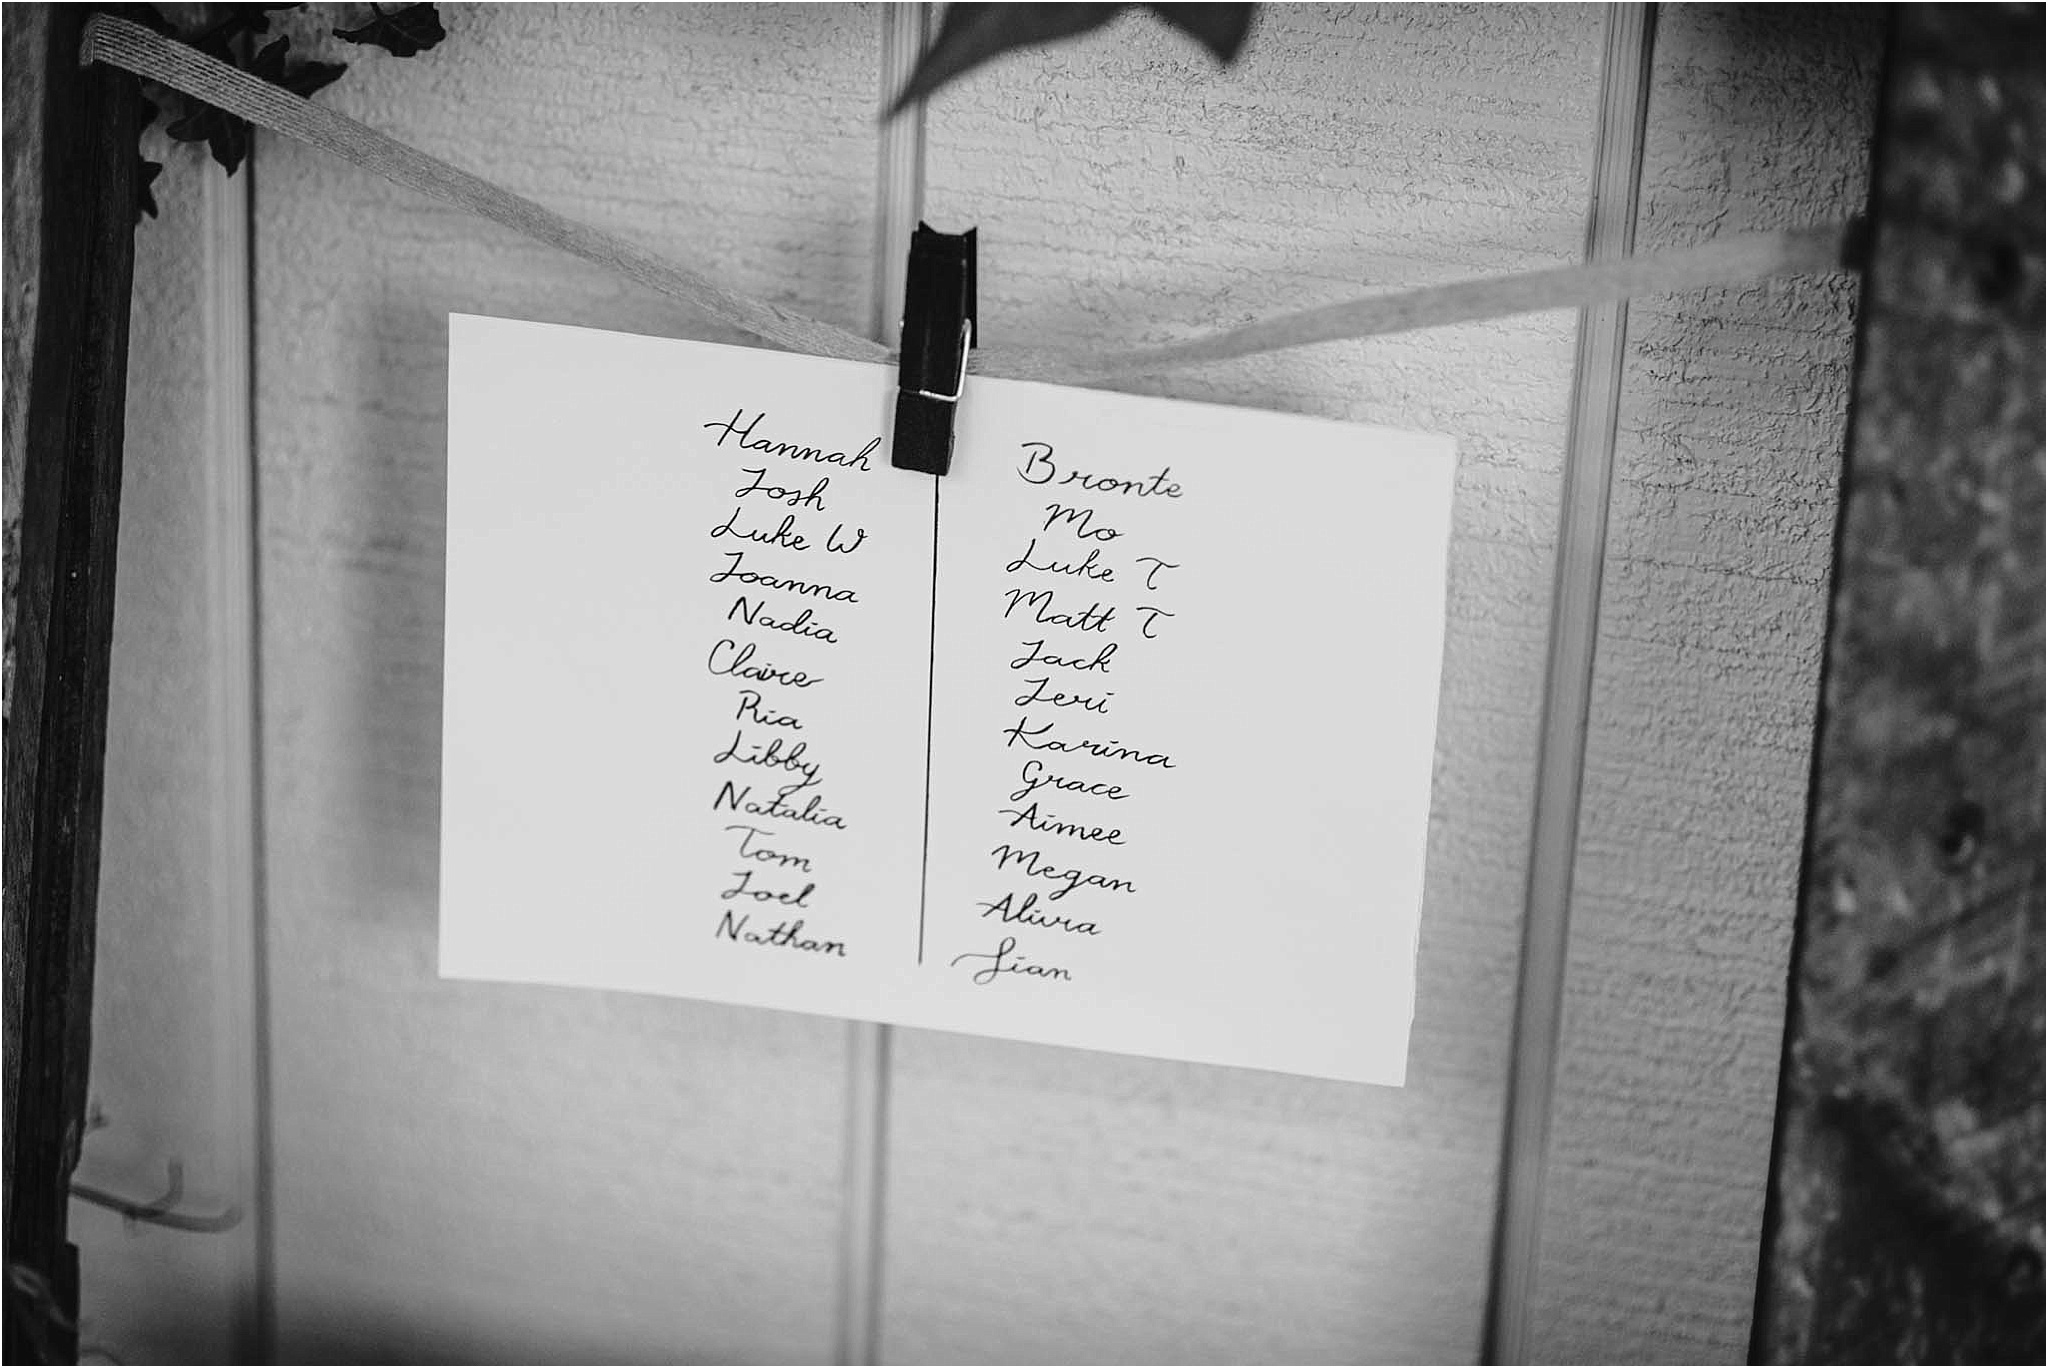 Hannah
Josh
Luke W
Joanna
Nadia
Claire
Ria
Libby
Natalia
Tom
Joel
Nathan
Bronte
Mo
Luke T
Matt T
Jack
Jeri
Karina
Grace
Aimee
Megan
Alivra
Sian